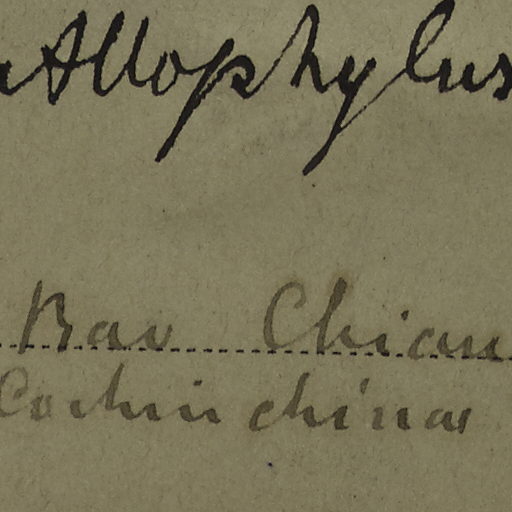 Allophylus
Bao Chian
Cochin chinae